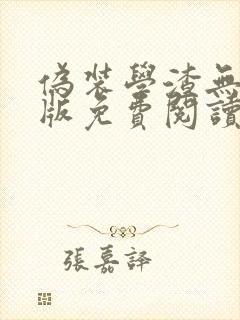 偽裝學渣無
版免費閱讀
張嘉譯